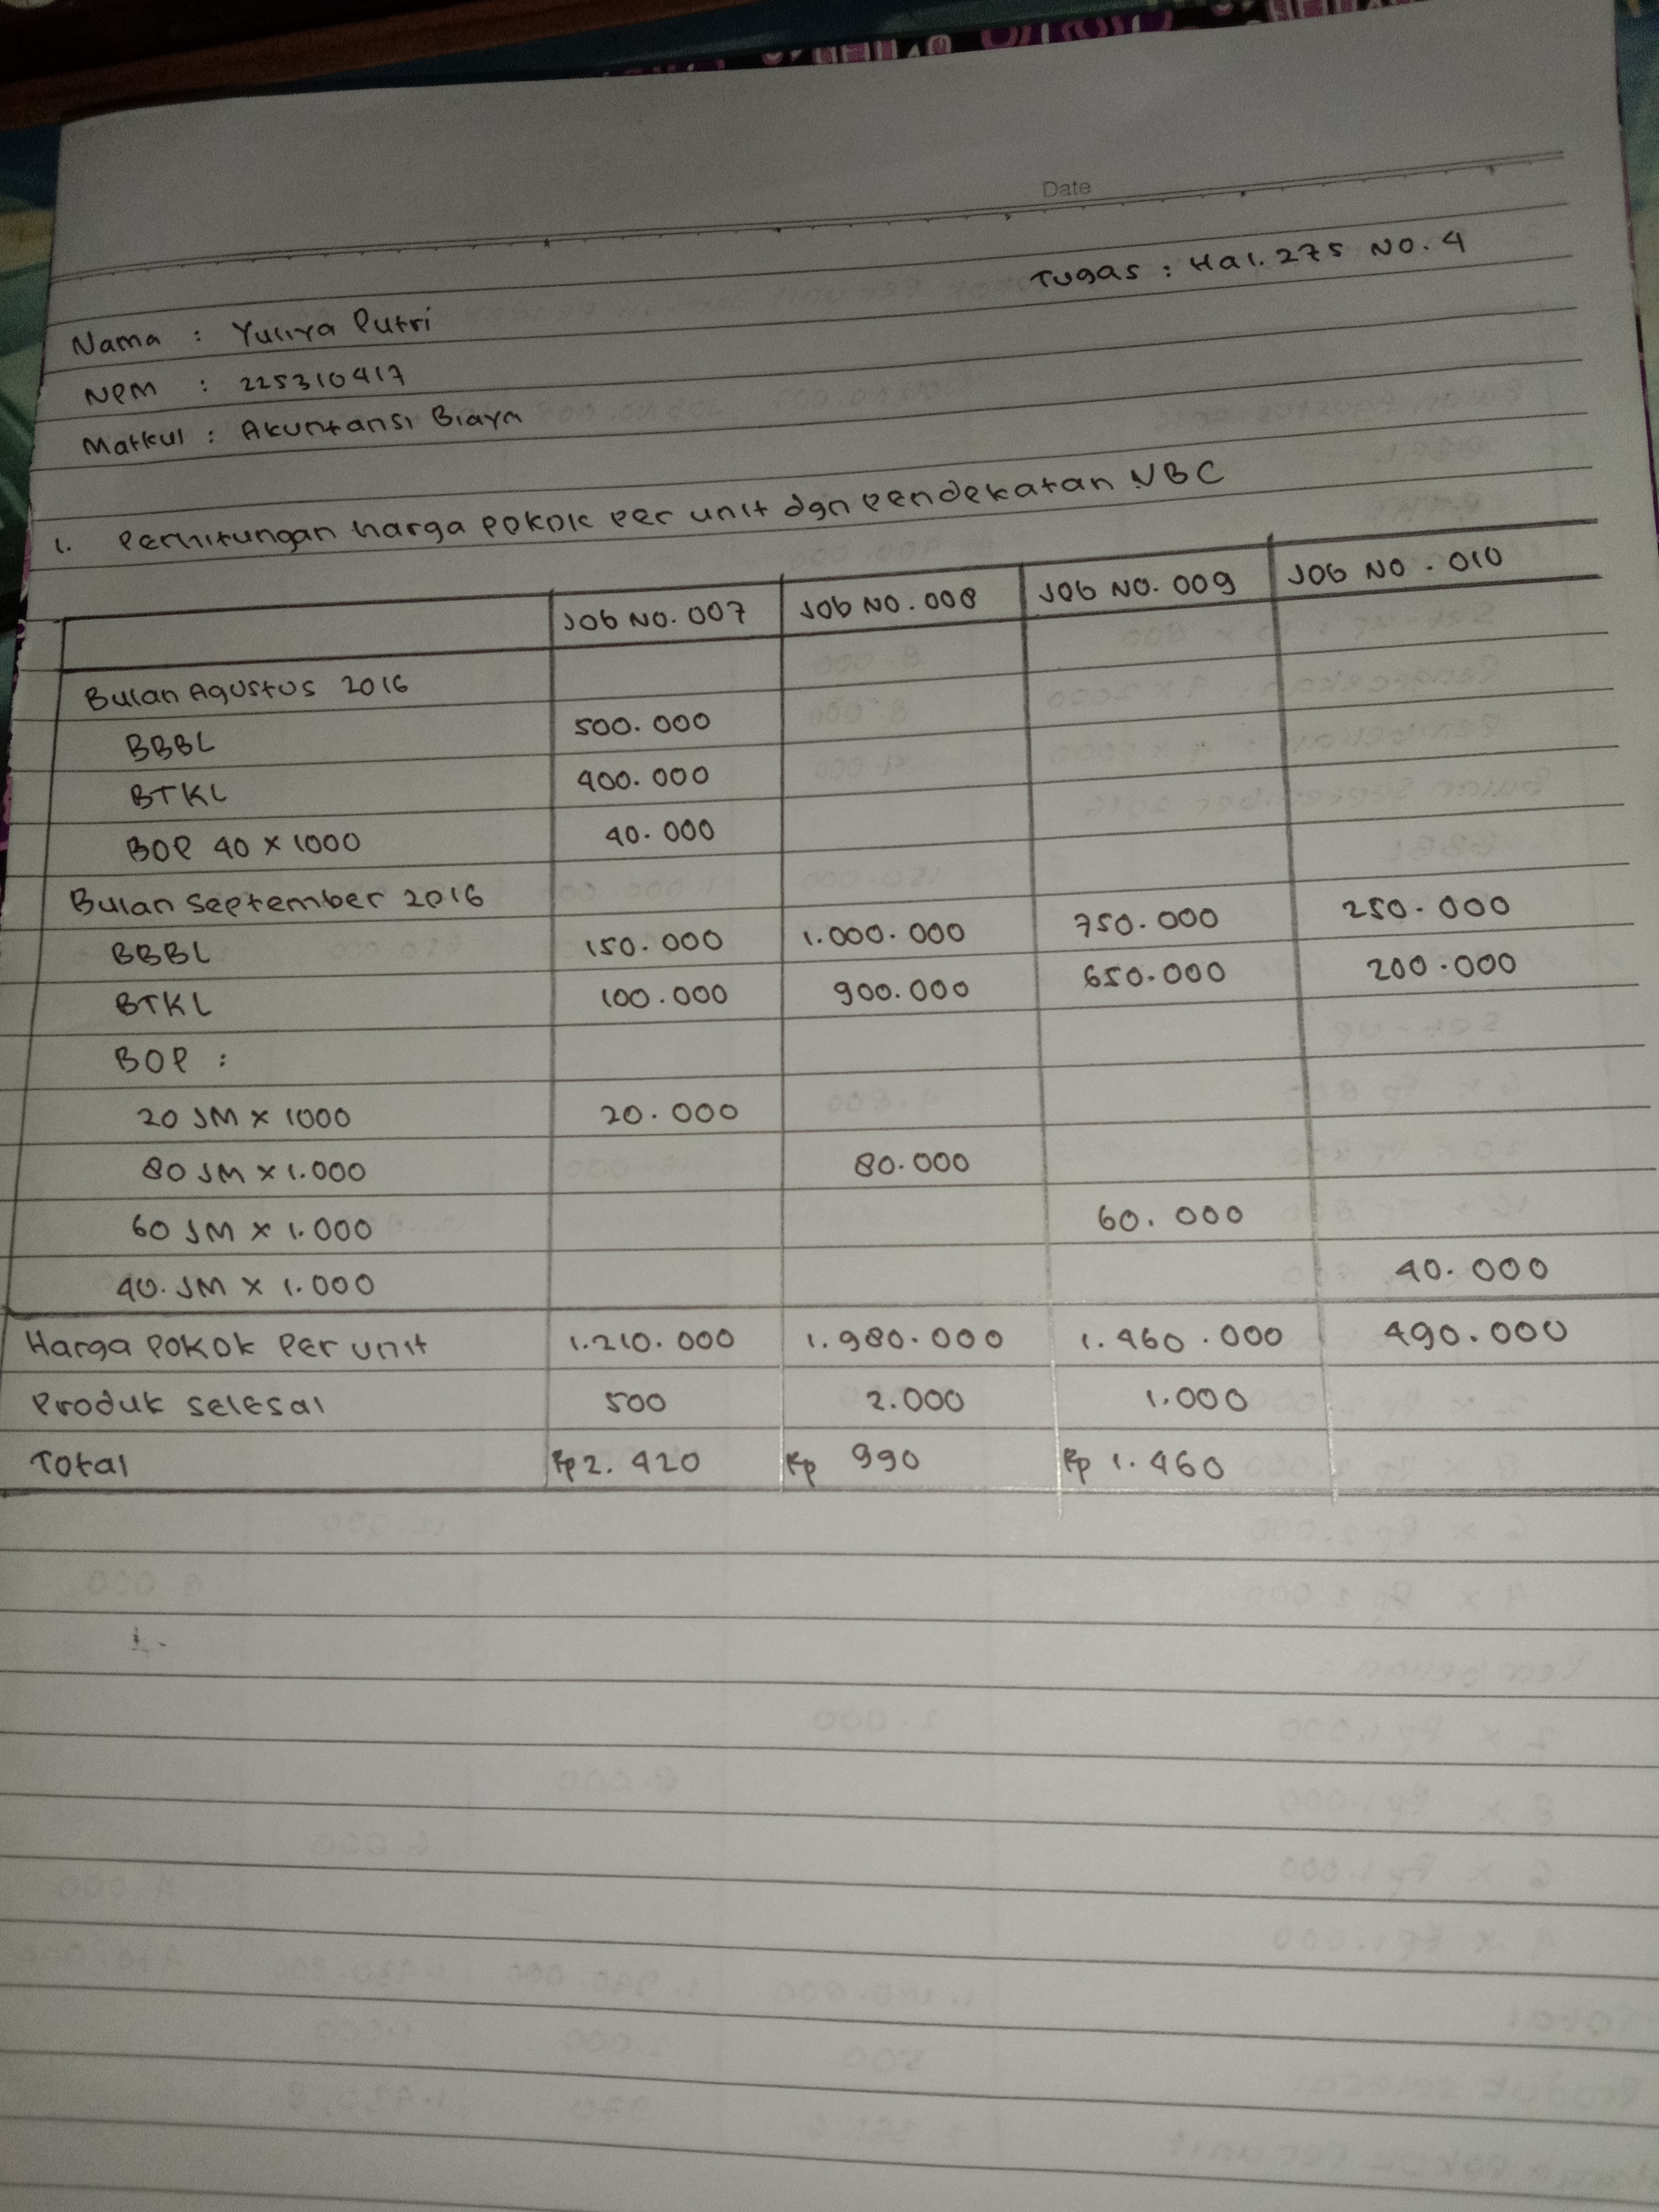 Date
Tugas : Hal. 275 No. 4
Nama : Yuliya Putri
NPM : 225310417
Matkul : Akuntansi Biaya
1. Perhitungan harga pokok per unit dgn pendekatan VBC
Job No. 007 Job No. 008 Job No. 009 Job No. 010
Bulan Agustus 2016
BBBL 500.000
BTKL 400.000
BOP 40 x 1000 40.000
Bulan September 2016
BBBL 150.000 1.000.000 750.000 250.000
BTKL 100.000 900.000 650.000 200.000
BOP :
20 JM x 1000 20.000
80 JM x 1.000 80.000
60 JM x 1.000 60.000
40. JM x 1.000 40.000
Harga pokok per unit 1.210.000 1.980.000 1.460.000 490.000
Produk selesai 500 2.000 1.000
Total Rp 2.420 Rp 990 Rp 1.460